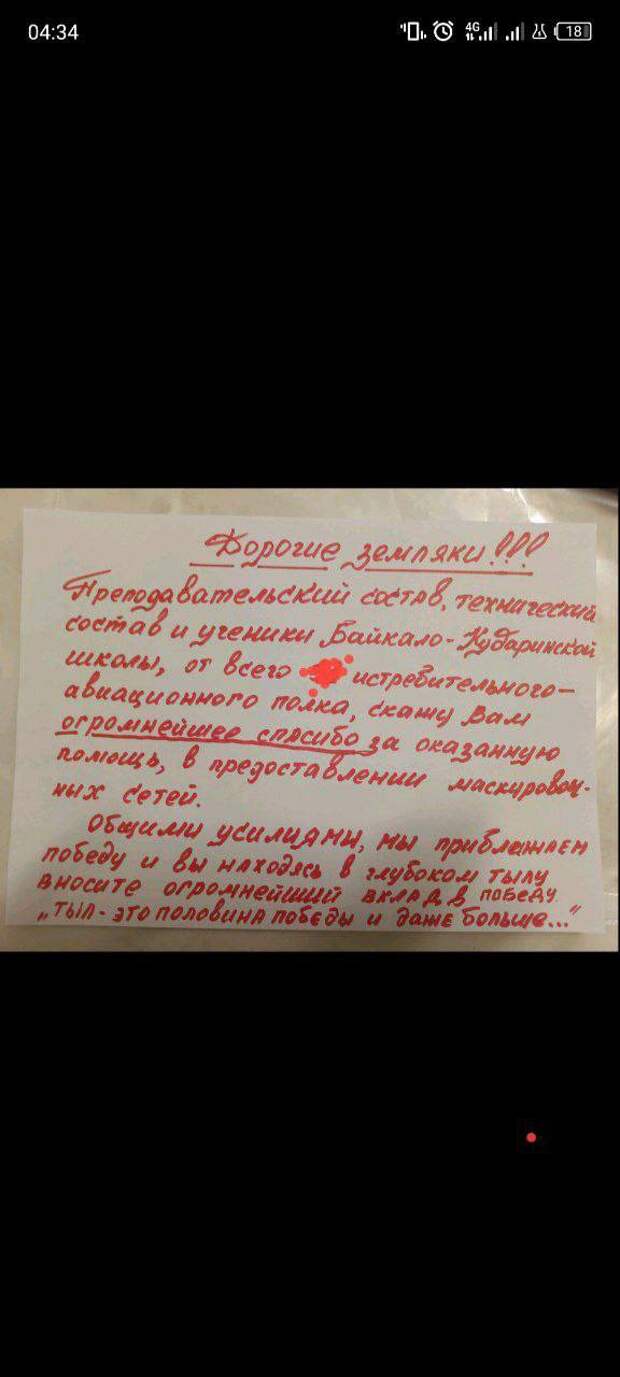 04:34
4G
18
Дорогие земляки!!!
Преподавательский состав, технический
состав и ученики Байкало-Кударинской
школы, от всего истребительного-
авиационного полка, скажу Вам
огромнейшее спасибо за оказанную
помощь, в предоставлении маскировоч-
ных сетей.
Общими усилиями, мы приближаем
победу и вы находясь в глубоком тылу
вносите огромнейший вклад в победу.
"Тыл - это половина победы и даже больше..."